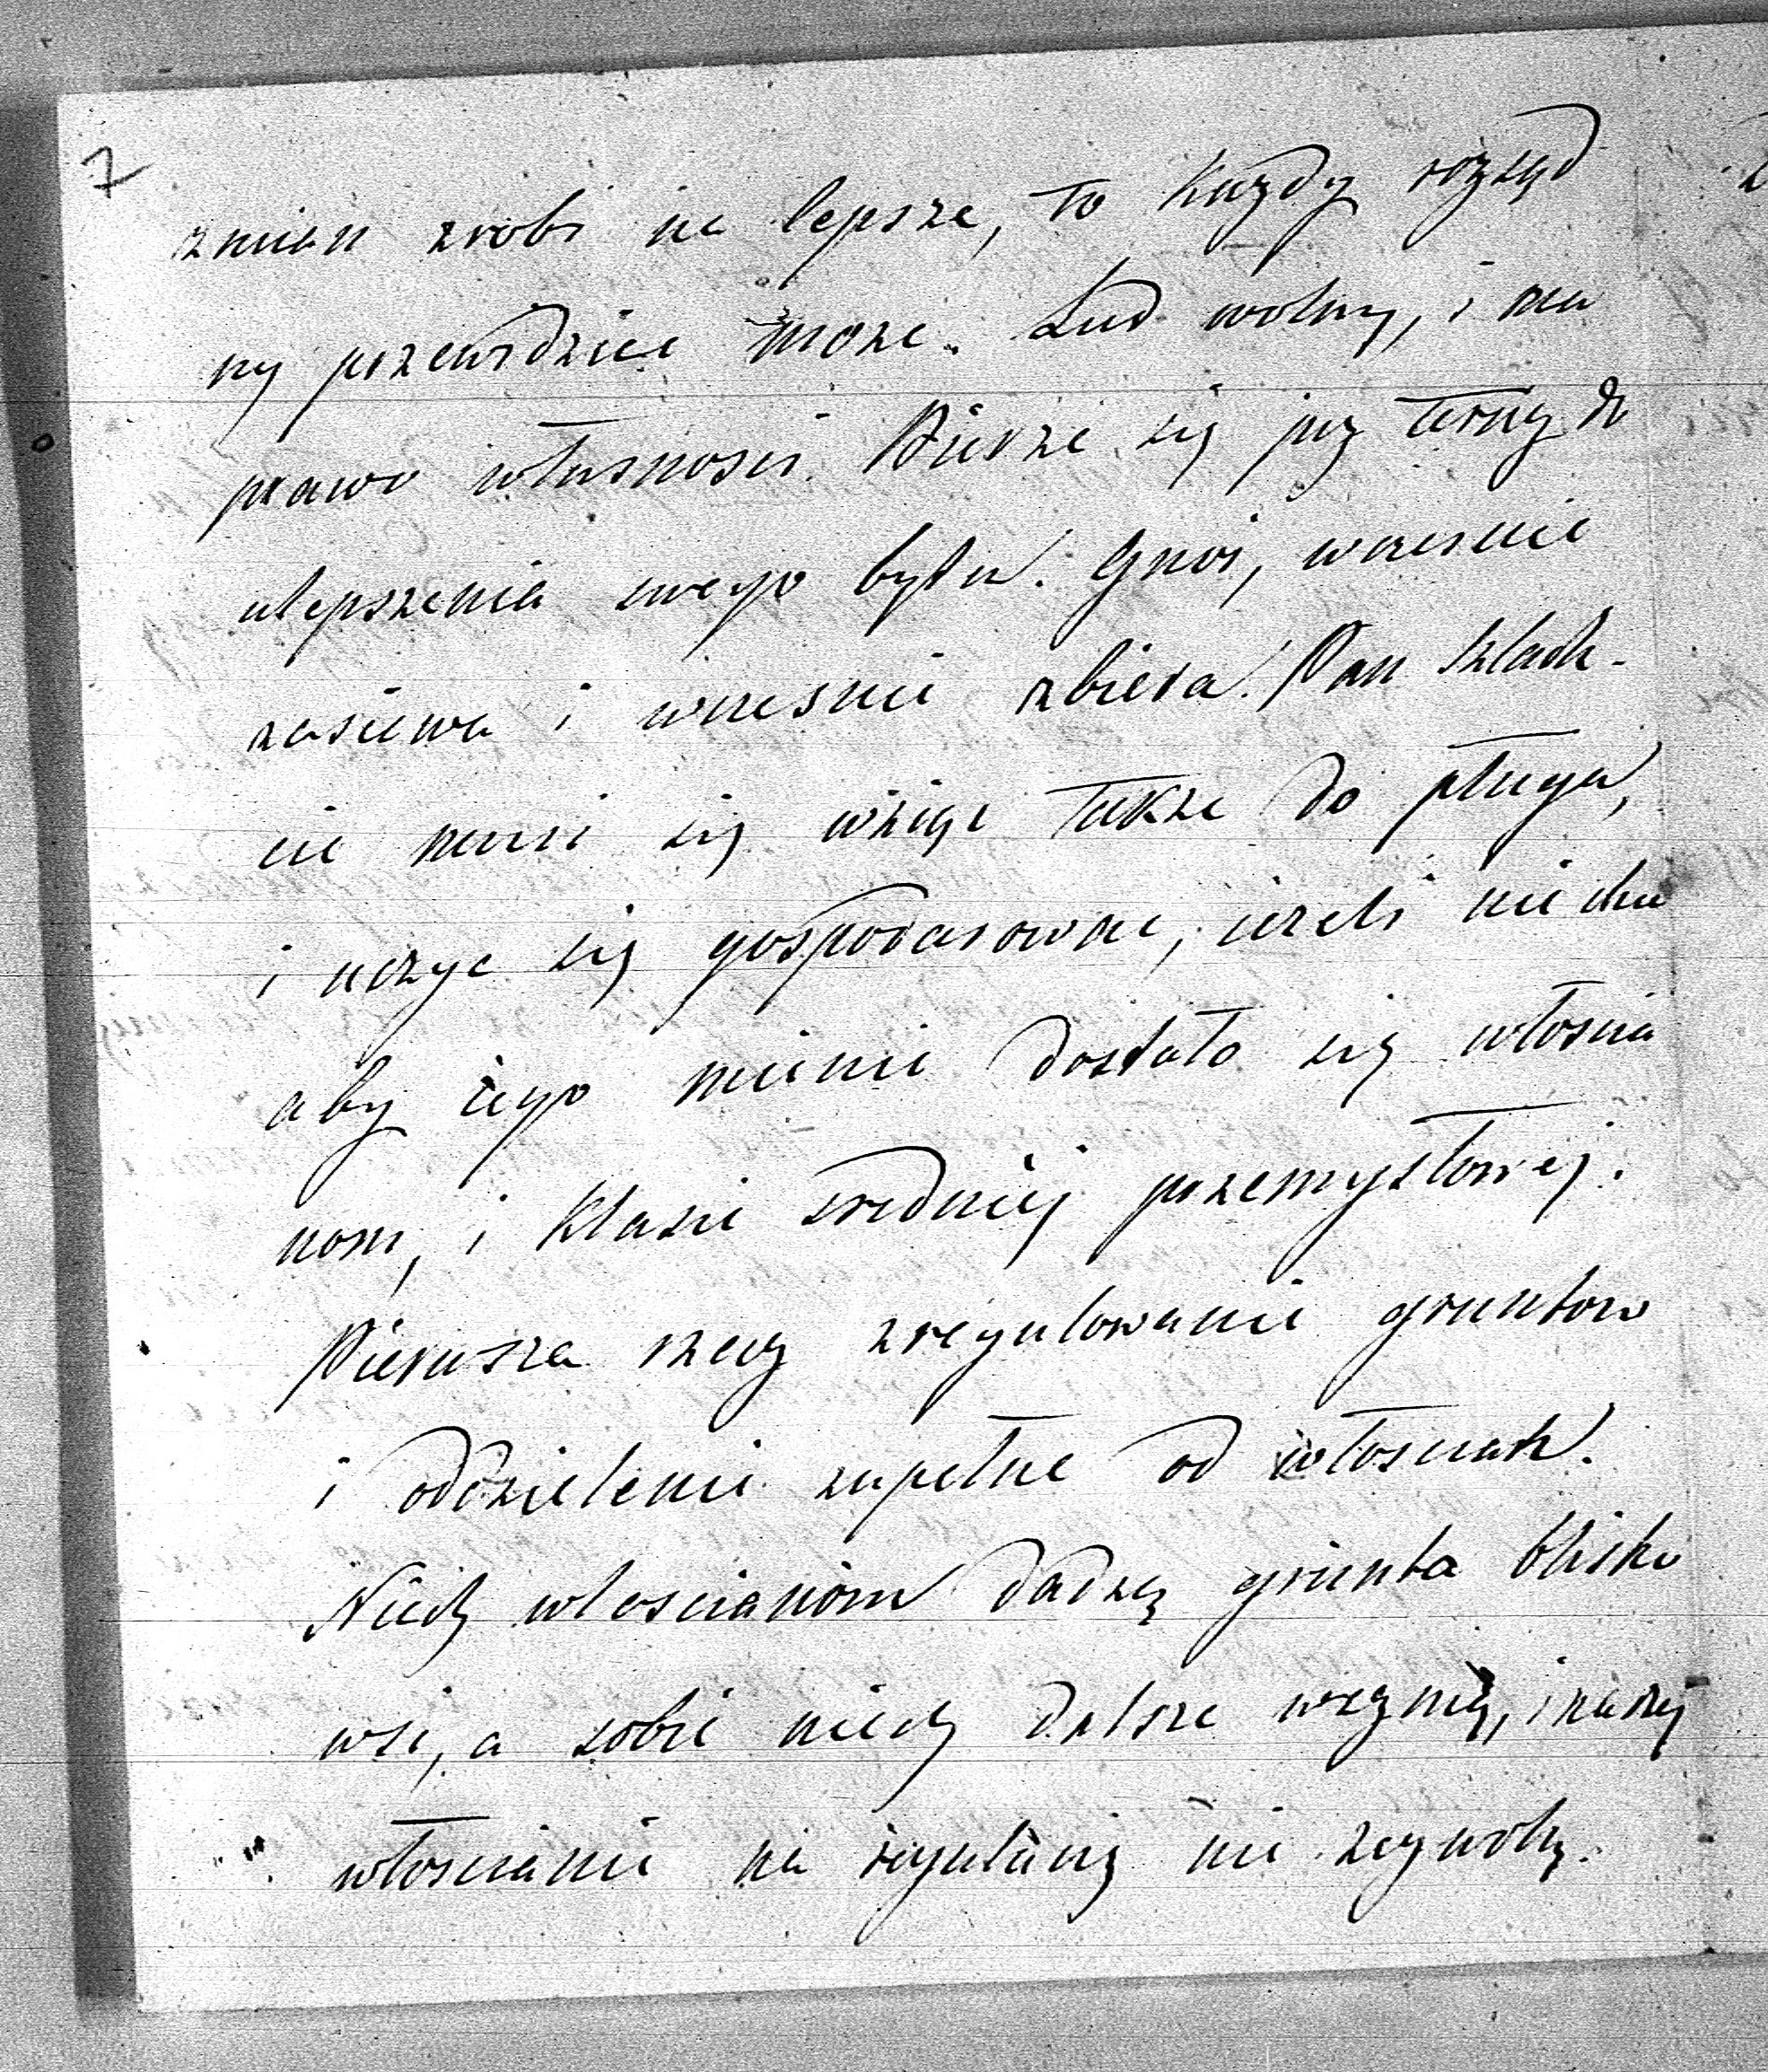 7
zmian zrobi na lepsze, to każdy rozsąd
ny przewidziec może. Lud wolny, i ma
prawo własnosci. Bierze się juz teraz do
ulepszenia swego bytu. Gnoi, wczesnie
zasiewa i wczesnie zbiera. Pan szlach-
cic musi się wziąc takze do pługa,
i uczyc się gospodarowac, jezeli nie chce
aby jego mienie dostało się włoscia
nom, i klasie sredniej przemysłowej.
Pierwsza rzecz zregulowanie gruntow
i oddzielenie zupełne od włosciach.
Niech włoscianom dadzą grunta blisko
wsi, a sobie niech dalsze wezmą, inaczej
włoscianie na regulacią nie zezwolą.